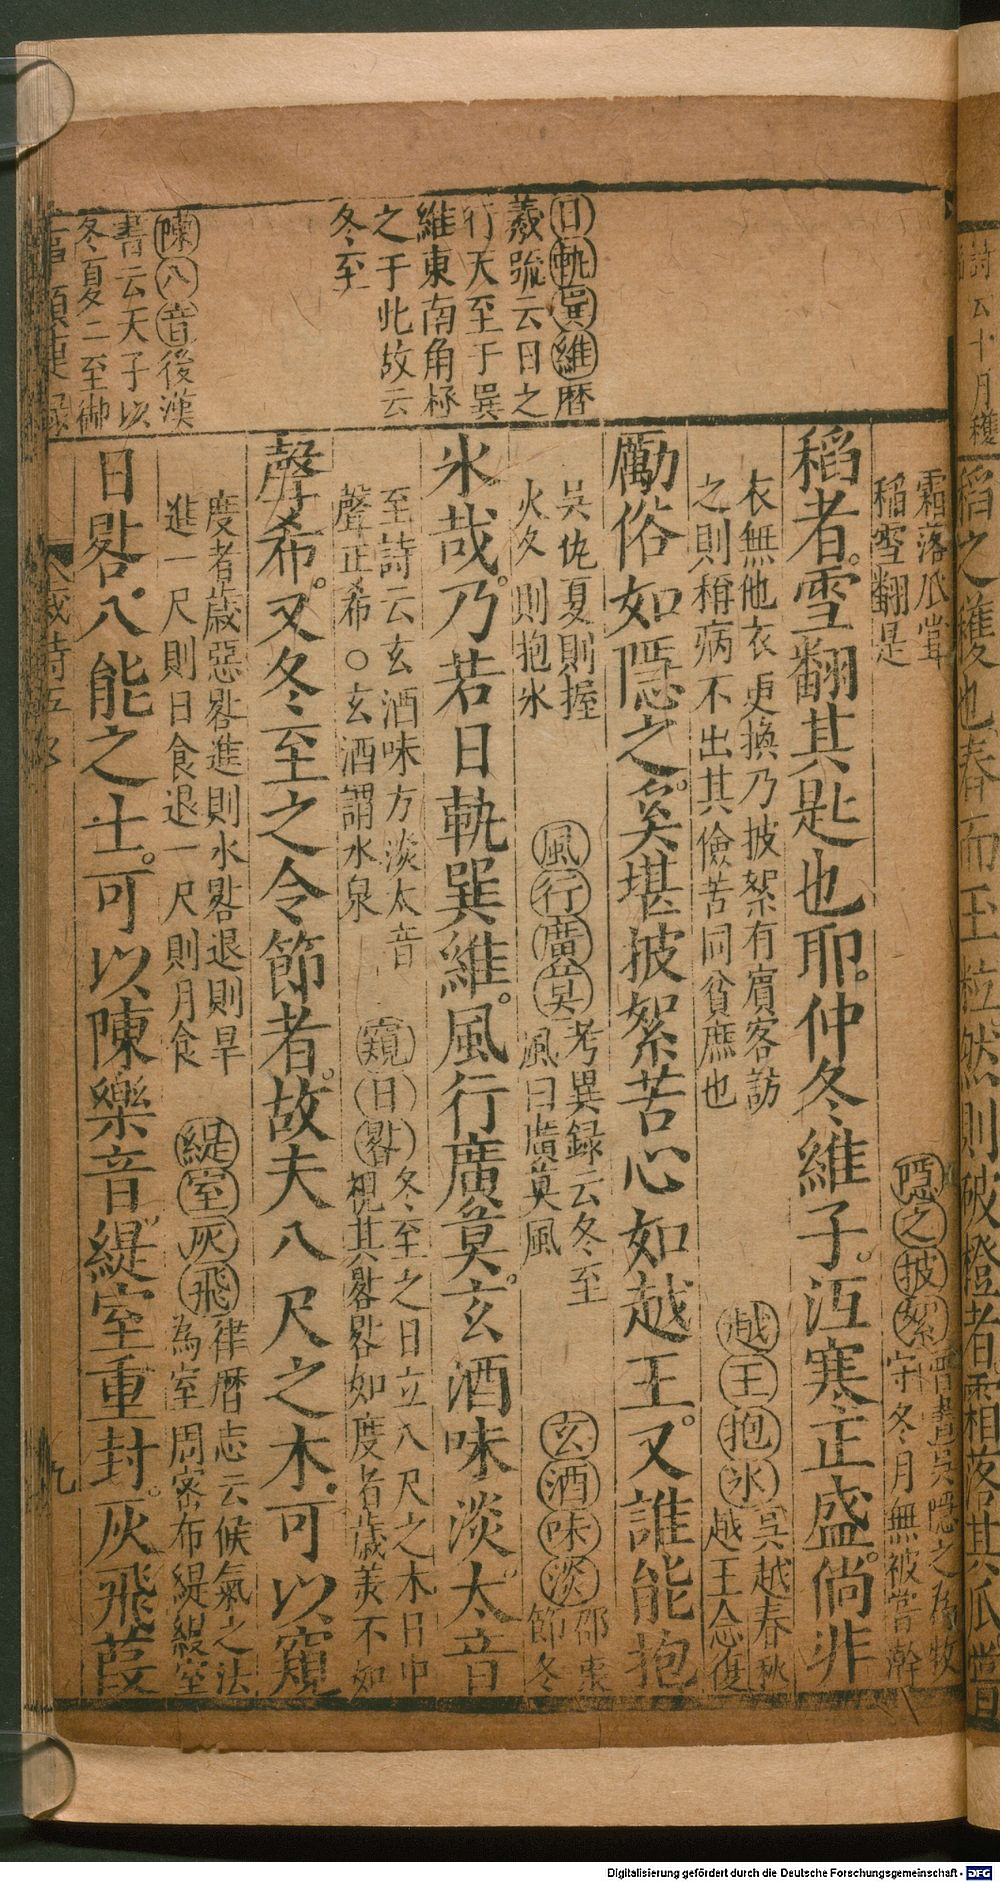 日軌巽維曆
義疏云日之
行天至于巽
維東南角極
之于此故云
冬至
陳八音後漢
書云天子以
冬夏二至御
霜落瓜嘗
稻雪翻是
隱之披絮晉書吳隱之為
守冬月無被嘗澣
稻者。雪翻其匙也耶。仲冬維子。沍寒正盛。倘非
衣無他衣更換乃披絮有賓客訪
之則稱病不出其儉苦同貧庶也
越王抱氷吳越春秋
越王念復
勵俗如隱之。奚堪披絮苦心如越王。又誰能抱
吳仇夏則握
火冬則抱氷
風行廣莫考異録云冬至
風曰廣莫風
玄酒味淡邵康
節冬
氷哉。乃若日軌巽維。風行廣莫。玄酒味淡。太音
至詩云玄酒味方淡太音
聲正希○玄酒謂水泉
窺日晷冬至之日立八尺之木日中
視其晷晷如度者歲美不如
聲希。又冬至之令節者。故夫八尺之木。可以窺
度者歲惡晷進則水晷退則旱
進一尺則日食退一尺則月食
緹室灰飛律曆志云候氣之法
為室周密布緹縵室
日晷。八能之士。可以陳樂音緹室重封。灰飛葭
歲時五
九
詩
云十月穫
稻之穫也春而玉粒然則破橙者霜落其瓜嘗
Digitalisierung gefördert durch die Deutsche Forschungsgemeinschaft - DFG